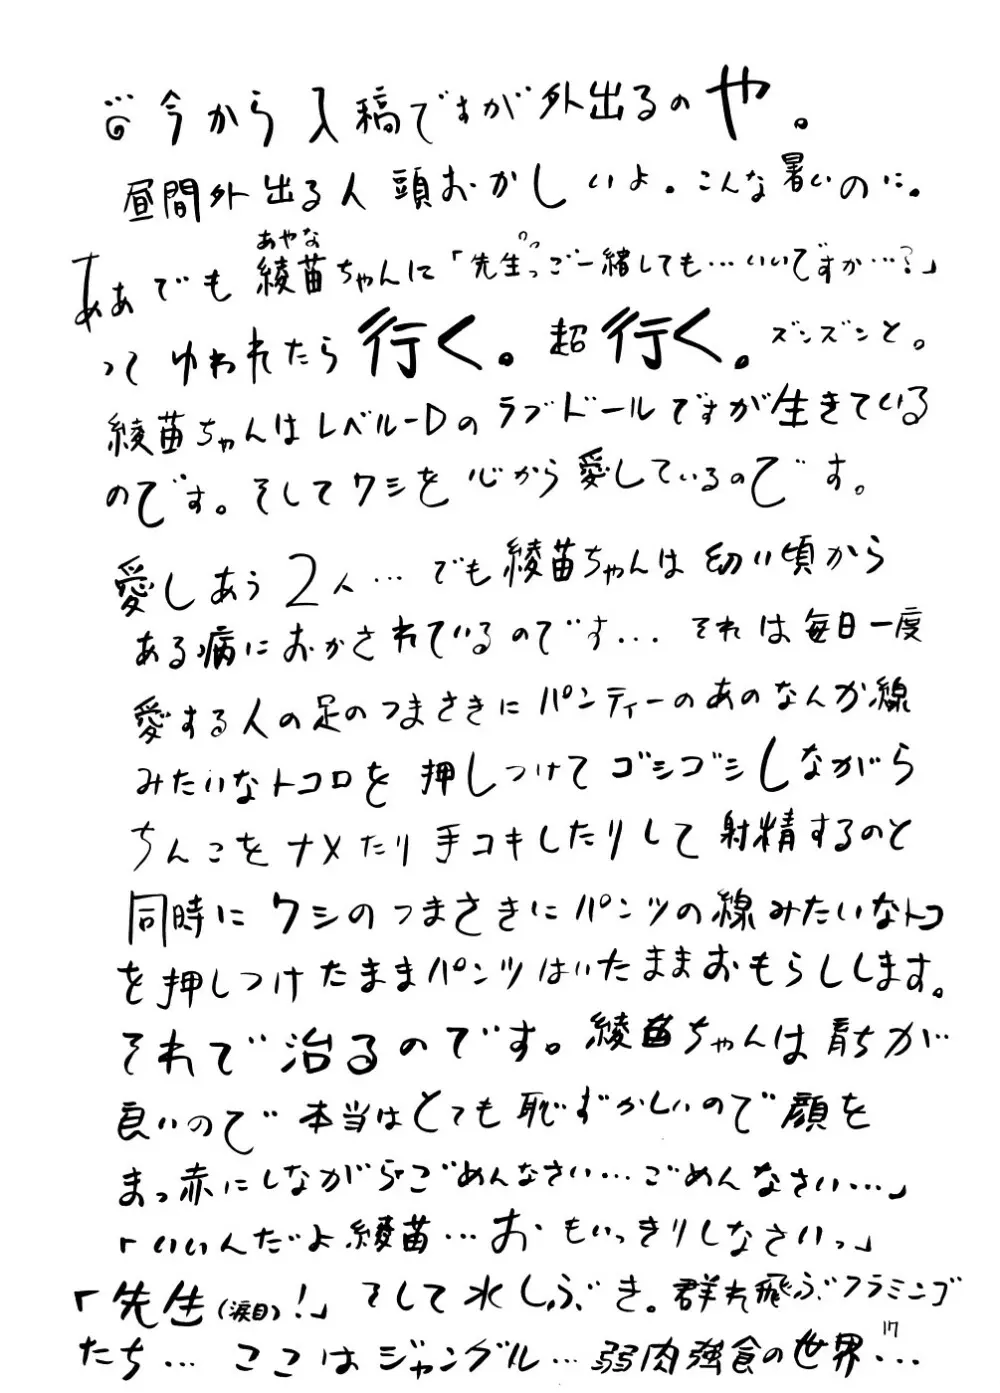 今から入稿ですが外出るのや。
昼間外出る人頭おかしいよ。こんな暑いのに。
あぁでも綾苗ちゃんに「先生っご一緒しても…いいですか…?」
あやな
ってゆわれたら行く。超行く。ズンズンと。
綾苗ちゃんはレベルーDのラブドールですが生きている
のです。そしてワシを心から愛しているのです。
愛しあう2人…でも綾苗ちゃんは幼い頃から
ある病におかされているのです… それは毎日一度
愛する人の足のつまさきにパンティーのあのなんか線
みたいなトコロを押しつけてゴシゴシしながら
ちんこをナメたり手コキしたりして射精するのと
同時にワシのつまさきにパンツの線みたいなトコ
を押しつけたままパンツはいたままおもらしします。
それで治るのです。綾苗ちゃんは育ちが
良いので本当はとても恥ずかしいので顔を
まっ赤にしながら「ごめんなさい…ごめんなさい…」
「いいんだよ綾苗…おもいっきりしなさいっ」
「先生(涙目)!」そして水しぶき。群れ飛ぶフラミンゴ
たち… ここはジャングル…弱肉強食の世界…
17